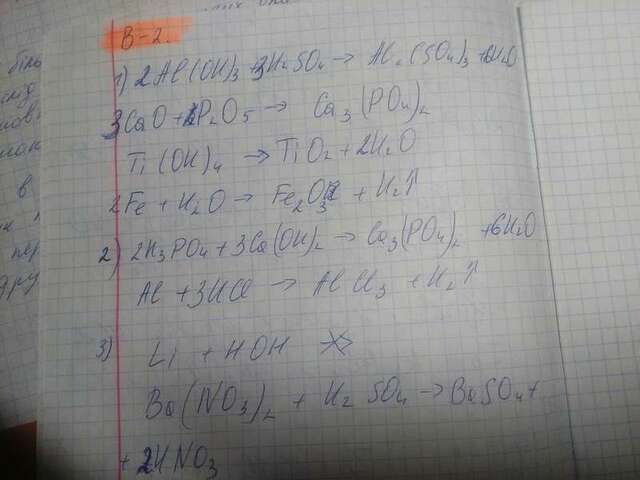 В-2.
1) 2Al(OH)3 + 3H2SO4 → Al2(SO4)3 + 6H2O
3CaO + P2O5 → Ca3(PO4)2
Ti(OH)4 → TiO2 + 2H2O
2Fe + H2O → Fe2O3 + H2↑
2) 2H3PO4 + 3Ca(OH)2 → Ca3(PO4)2 + 6H2O
Al + 3HCl → AlCl3 + H2↑
3) Li + HOH
Ba(NO3)2 + H2SO4 → BaSO4 +
+ 2HNO3